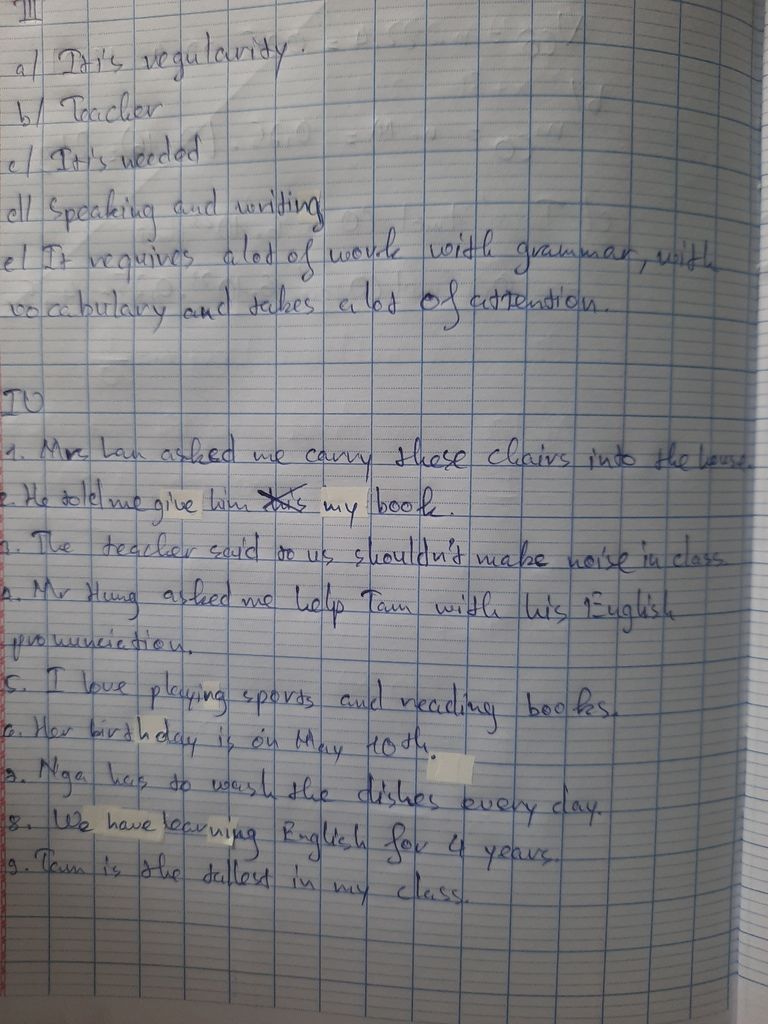 III
a/ It's regularity.
b/ Teacher
c/ It's needed
d/ Speaking and writing
e/ It requires alot of work with grammar, with
vocabulary and takes alot of attention.
IV
1. Mrs Lan asked me carry these chairs into the house.
2. He told me give him my book.
3. The teacher said to us shouldn't make noise in class
4. Mr Hung asked me help Tam with his English
pronunciation.
5. I love playing sports and reading books.
6. Her birthday is on May 10th.
7. Nga has to wash the dishes every day.
8. We have learning English for 4 years.
9. Tam is the tallest in my class.